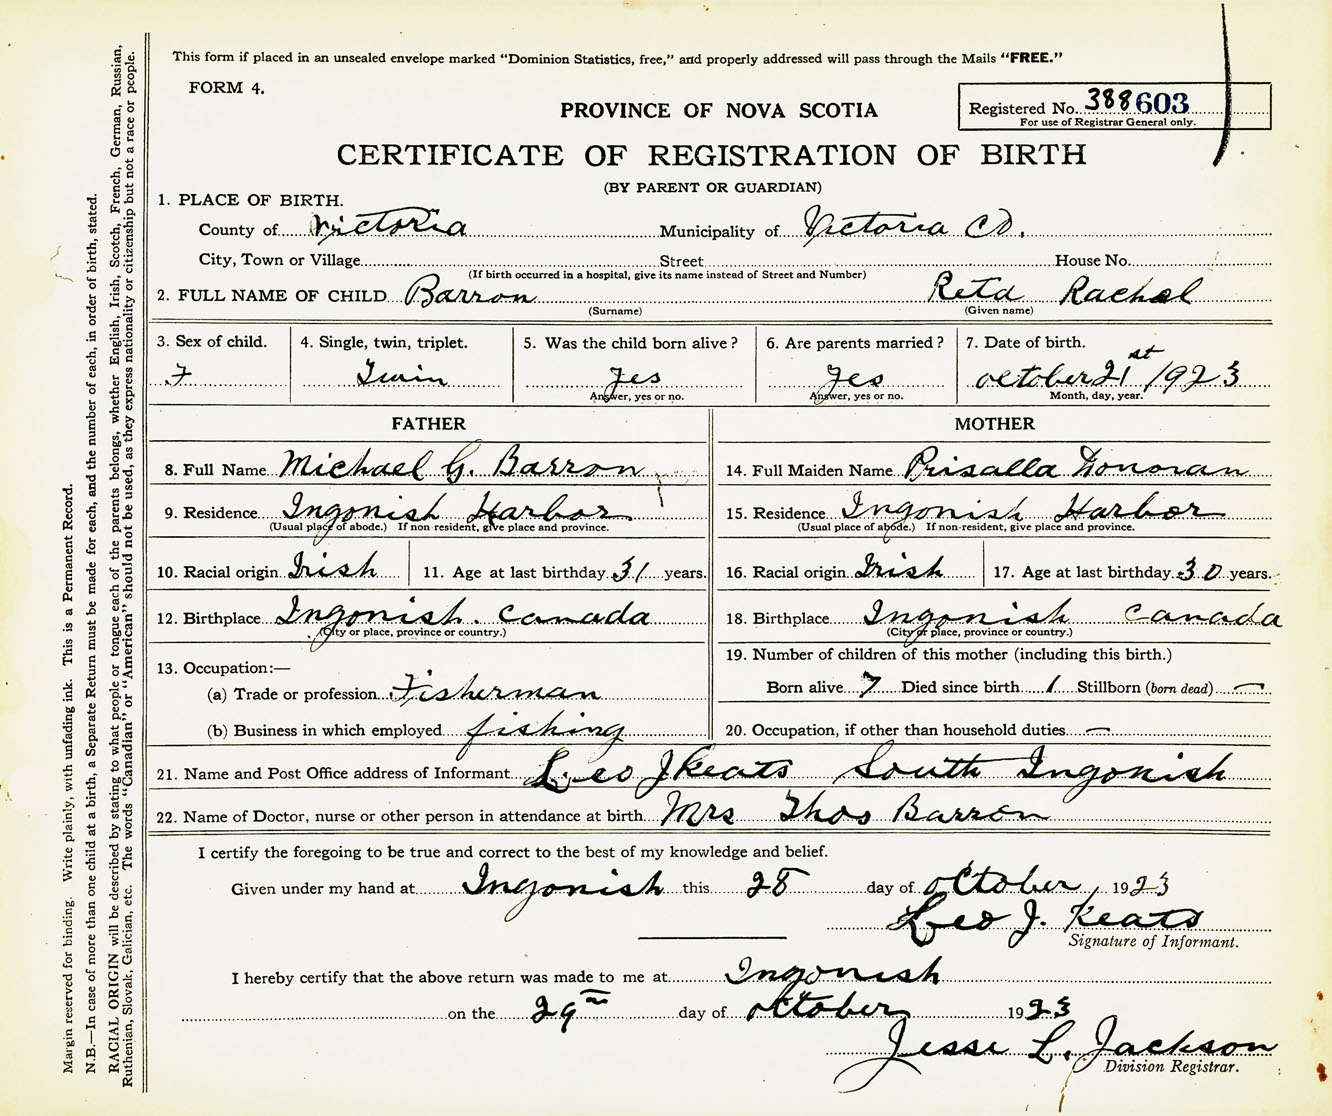 This form if placed in an unsealed envelope marked "Dominion Statistics, free," and properly addressed will pass through the Mails "FREE."
FORM 4.
PROVINCE OF NOVA SCOTIA
Registered No. 388603
For use of Registrar General only.
CERTIFICATE OF REGISTRATION OF BIRTH
(BY PARENT OR GUARDIAN)
1. PLACE OF BIRTH.
County of Victoria Municipality of Victoria CO.
City, Town or Village Street House No.
(If birth occurred in a hospital, give its name instead of Street and Number)
2. FULL NAME OF CHILD Barron Reta Rachel
(Surname) (Given name)
3. Sex of child. 4. Single, twin, triplet. 5. Was the child born alive? 6. Are parents married? 7. Date of birth.
F Twin Yes Yes october 21st 1923
Answer, yes or no. Answer, yes or no. Month, day, year.
FATHER
8. Full Name Michael G. Barron
9. Residence Ingonish Harbor
(Usual place of abode.) If non-resident, give place and province.
10. Racial origin Irish 11. Age at last birthday 31 years.
12. Birthplace Ingonish. Canada
(City or place, province or country.)
13. Occupation:—
(a) Trade or profession Fisherman
(b) Business in which employed fishing
MOTHER
14. Full Maiden Name Prisalla Donovan
15. Residence Ingonish Harbor
(Usual place of abode.) If non-resident, give place and province.
16. Racial origin Irish 17. Age at last birthday 30 years.
18. Birthplace Ingonish Canada
(City or place, province or country.)
19. Number of children of this mother (including this birth.)
Born alive 7 Died since birth 1 Stillborn (born dead) —
20. Occupation, if other than household duties —
21. Name and Post Office address of Informant Leo J Keats South Ingonish
22. Name of Doctor, nurse or other person in attendance at birth Mrs Thos Barron
I certify the foregoing to be true and correct to the best of my knowledge and belief.
Given under my hand at Ingonish this 28 day of October, 1923
Leo J. Keats
Signature of Informant.
I hereby certify that the above return was made to me at Ingonish
on the 29th day of october 1923
Jesse L. Jackson
Division Registrar.
Margin reserved for binding. Write plainly, with unfading ink. This is a Permanent Record.
N.B.—In case of more than one child at a birth, a Separate Return must be made for each, and the number of each, in order of birth, stated.
RACIAL ORIGIN will be described by stating to what people or tongue each of the parents belongs, whether English, Irish, Scotch, French, German, Russian,
Ruthenian, Slovak, Galician, etc. The words "Canadian" or "American" should not be used, as they express nationality or citizenship but not a race or people.